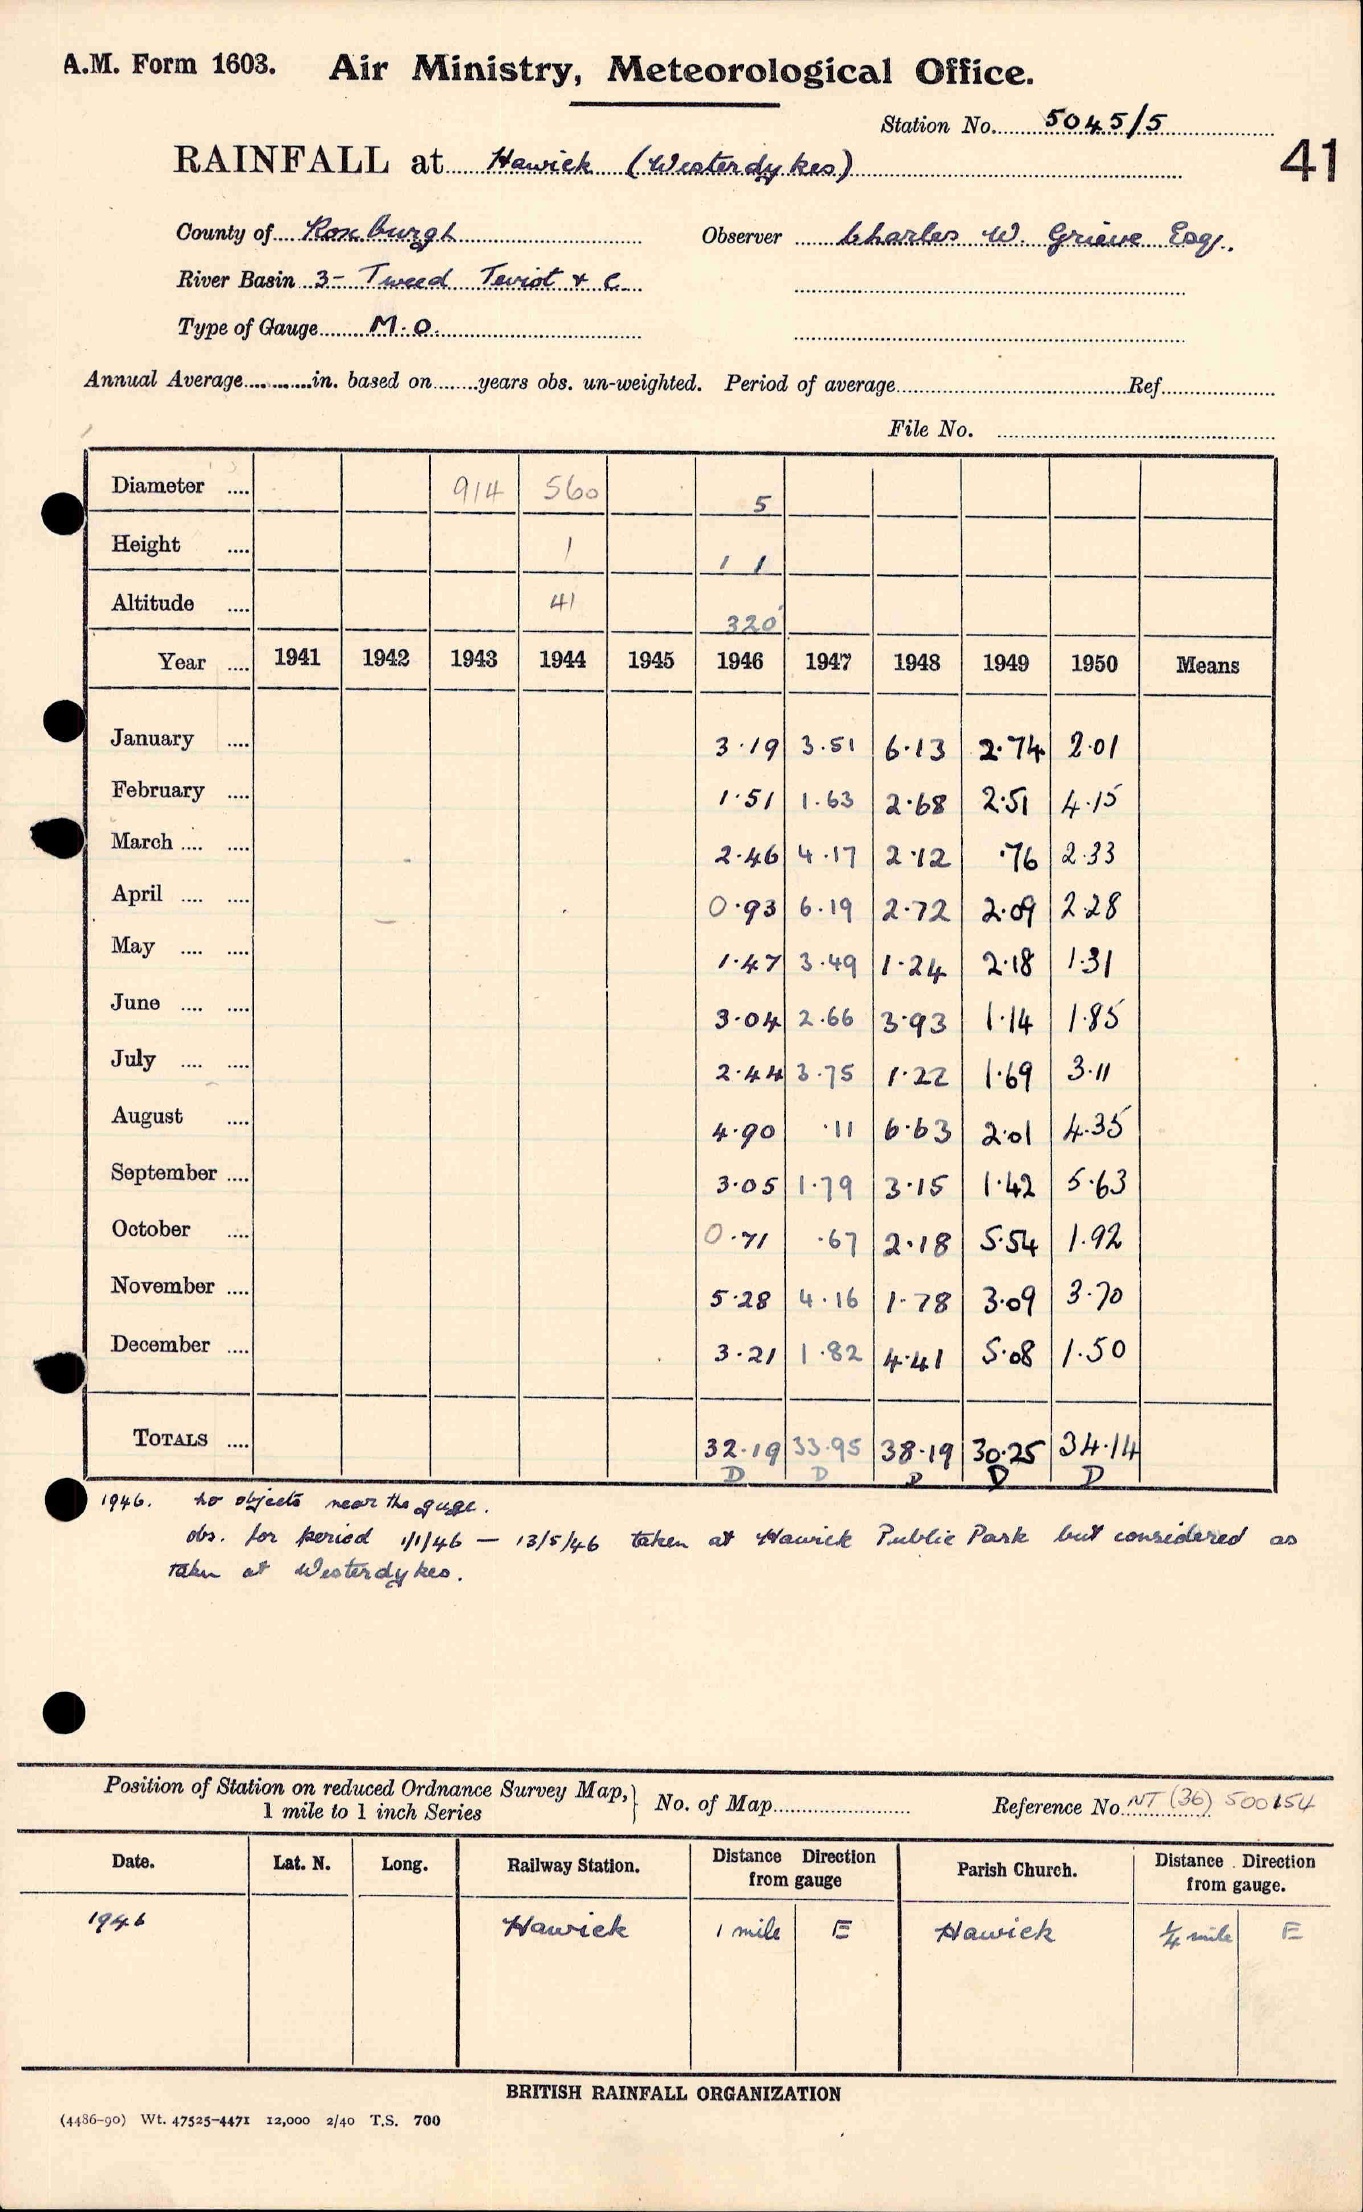 A.M. Form 1603. Air Ministry, Meteorological Office.
Station No. 5045/5
41
RAINFALL at Hawick (Westerdykes)
County of Roxburgh Observer Charles W. Grieve Esq.
River Basin 3- Tweed Teviot & C
Type of Gauge M.O.
Annual Average in. based on years obs. un-weighted. Period of average Ref.
File No.
Diameter 914 560 5
Height 1 1 1
Altitude 41 320'
Year 1941 1942 1943 1944 1945 1946 1947 1948 1949 1950 Means
January 3.19 3.51 6.13 2.74 2.01
February 1.51 1.63 2.68 2.51 4.15
March 2.46 4.17 2.12 .76 2.33
April 0.93 6.19 2.72 2.09 2.28
May 1.47 3.49 1.24 2.18 1.31
June 3.04 2.66 3.93 1.14 1.85
July 2.44 3.75 1.22 1.69 3.11
August 4.90 .11 6.63 2.01 4.35
September 3.05 1.79 3.15 1.42 5.63
October 0.71 .67 2.18 5.54 1.92
November 5.28 4.16 1.78 3.09 3.70
December 3.21 1.82 4.41 5.08 1.50
TOTALS 32.19 33.95 38.19 30.25 34.14
D D D D D
1946. no objects near the guge.
obs. for period 1/1/46 — 13/5/46 taken at Hawick Public Park but considered as
taken at Westerdykes.
Position of Station on reduced Ordnance Survey Map,
1 mile to 1 inch Series
No. of Map Reference No. NT (36) 500154
Date. Lat. N. Long. Railway Station. Distance Direction from gauge Parish Church. Distance Direction from gauge.
1946 Hawick 1 mile E Hawick 1/4 mile E
BRITISH RAINFALL ORGANIZATION
(4486-90) Wt. 47525-4471 12,000 2/40 T.S. 700